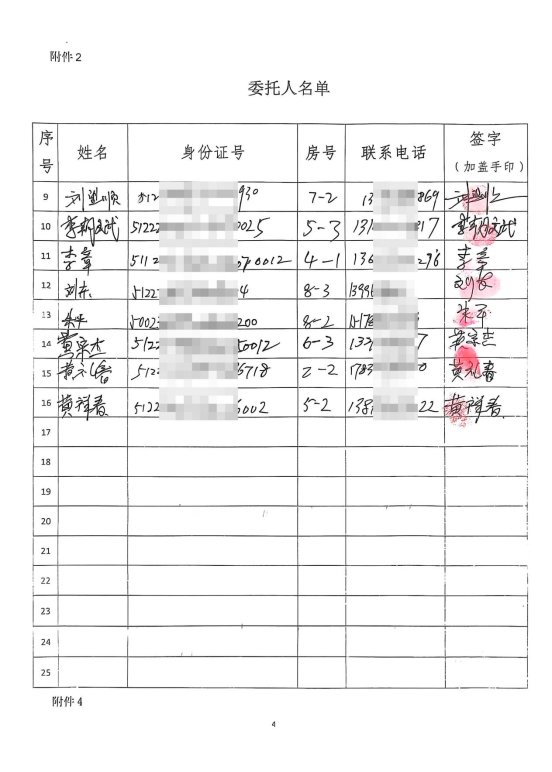 附件2
委托人名单
序号 姓名 身份证号 房号 联系电话 签字（加盖手印）
9 512 930 7-2 13 869
10 51222 0025 5-3 131 17
11 李章 5112 4-1 136 296 李章
12 刘东 5122 4 8-3 1399
13 余平 50023 200 8-2 余平
14 黄宗杰 5122 50012 6-3 133 7 黄宗杰
15 黄礼春 5122 6718 2-2 1783 0 黄礼春
16 黄祥春 5122 6002 5-2 138 22 黄祥春
17
18
19
20
21
22
23
24
25
附件4
4